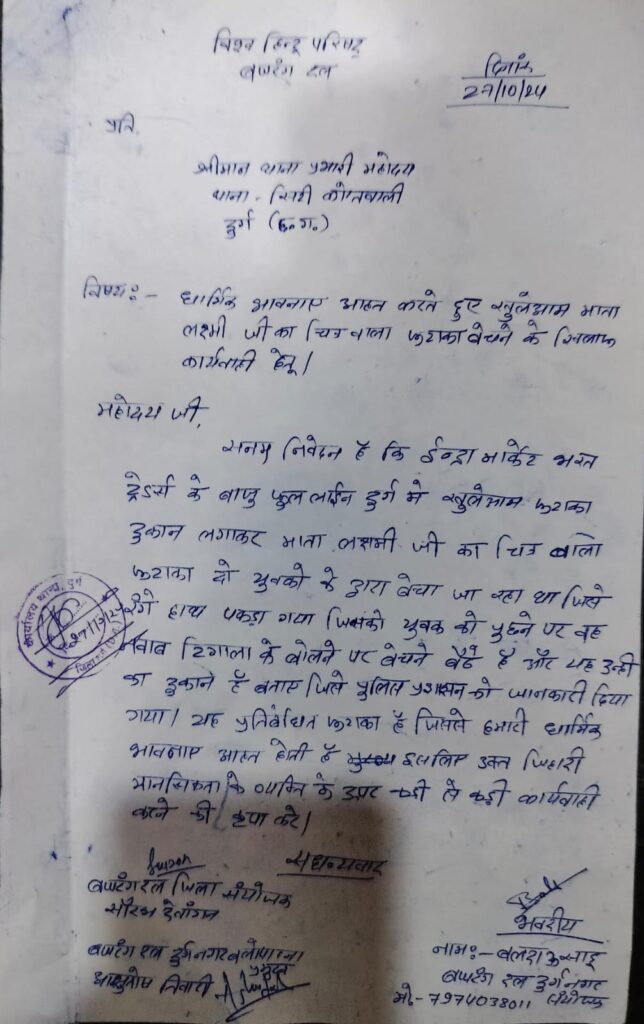 विश्व हिन्दू परिषद
बजरंग दल
दिनांक
27/10/24
प्रति,
श्रीमान थाना प्रभारी महोदय
थाना - सिटी कोतवाली
दुर्ग (छ.ग.)
विषय:- धार्मिक भावनाए आहत करते हुए खुलेआम माता
लक्ष्मी जी का चित्र वाला फटाका बेचने के खिलाफ
कार्यवाही हेतू।
महोदय जी,
सनम्र निवेदन है कि ईन्द्रा मार्केट भरत
ट्रेडर्स के बाजु फुल लाईन दुर्ग मे खुलेआम फटाका
दुकान लगाकर माता लक्ष्मी जी का चित्र वाला
फटाका दो युवको के द्वारा बेचा जा रहा था जिसे
रंगे हाथ पकड़ा गया जिसको युवक को पुछने पर वह
नवाब टिगाला के बोलने पर बेचने बैठे है और यह उन्ही
का दुकाने है बताए जिसे पुलिस प्रशासन को जानकारी दिया
गया। यह प्रतिबंधित फटाका है जिससे हमारी धार्मिक
भावनाए आहत होती है इसलिए उक्त जिहादी
मानसिकता के व्यक्ति के उपर कड़ी से कड़ी कार्यवाही
करने की कृपा करे।
सधन्यवाद
बजरंगदल जिला संयोजक
सौरभ देवांगन
बजरंग दल दुर्गनगर
प्रमुख
आशुतोष तिवारी
भवदीय
नाम:- बलदाऊ साहू
बजरंग दल दुर्गनगर
संयोजक
मो.- 7974038011
कार्यालय थाना, दुर्ग
27/10/24